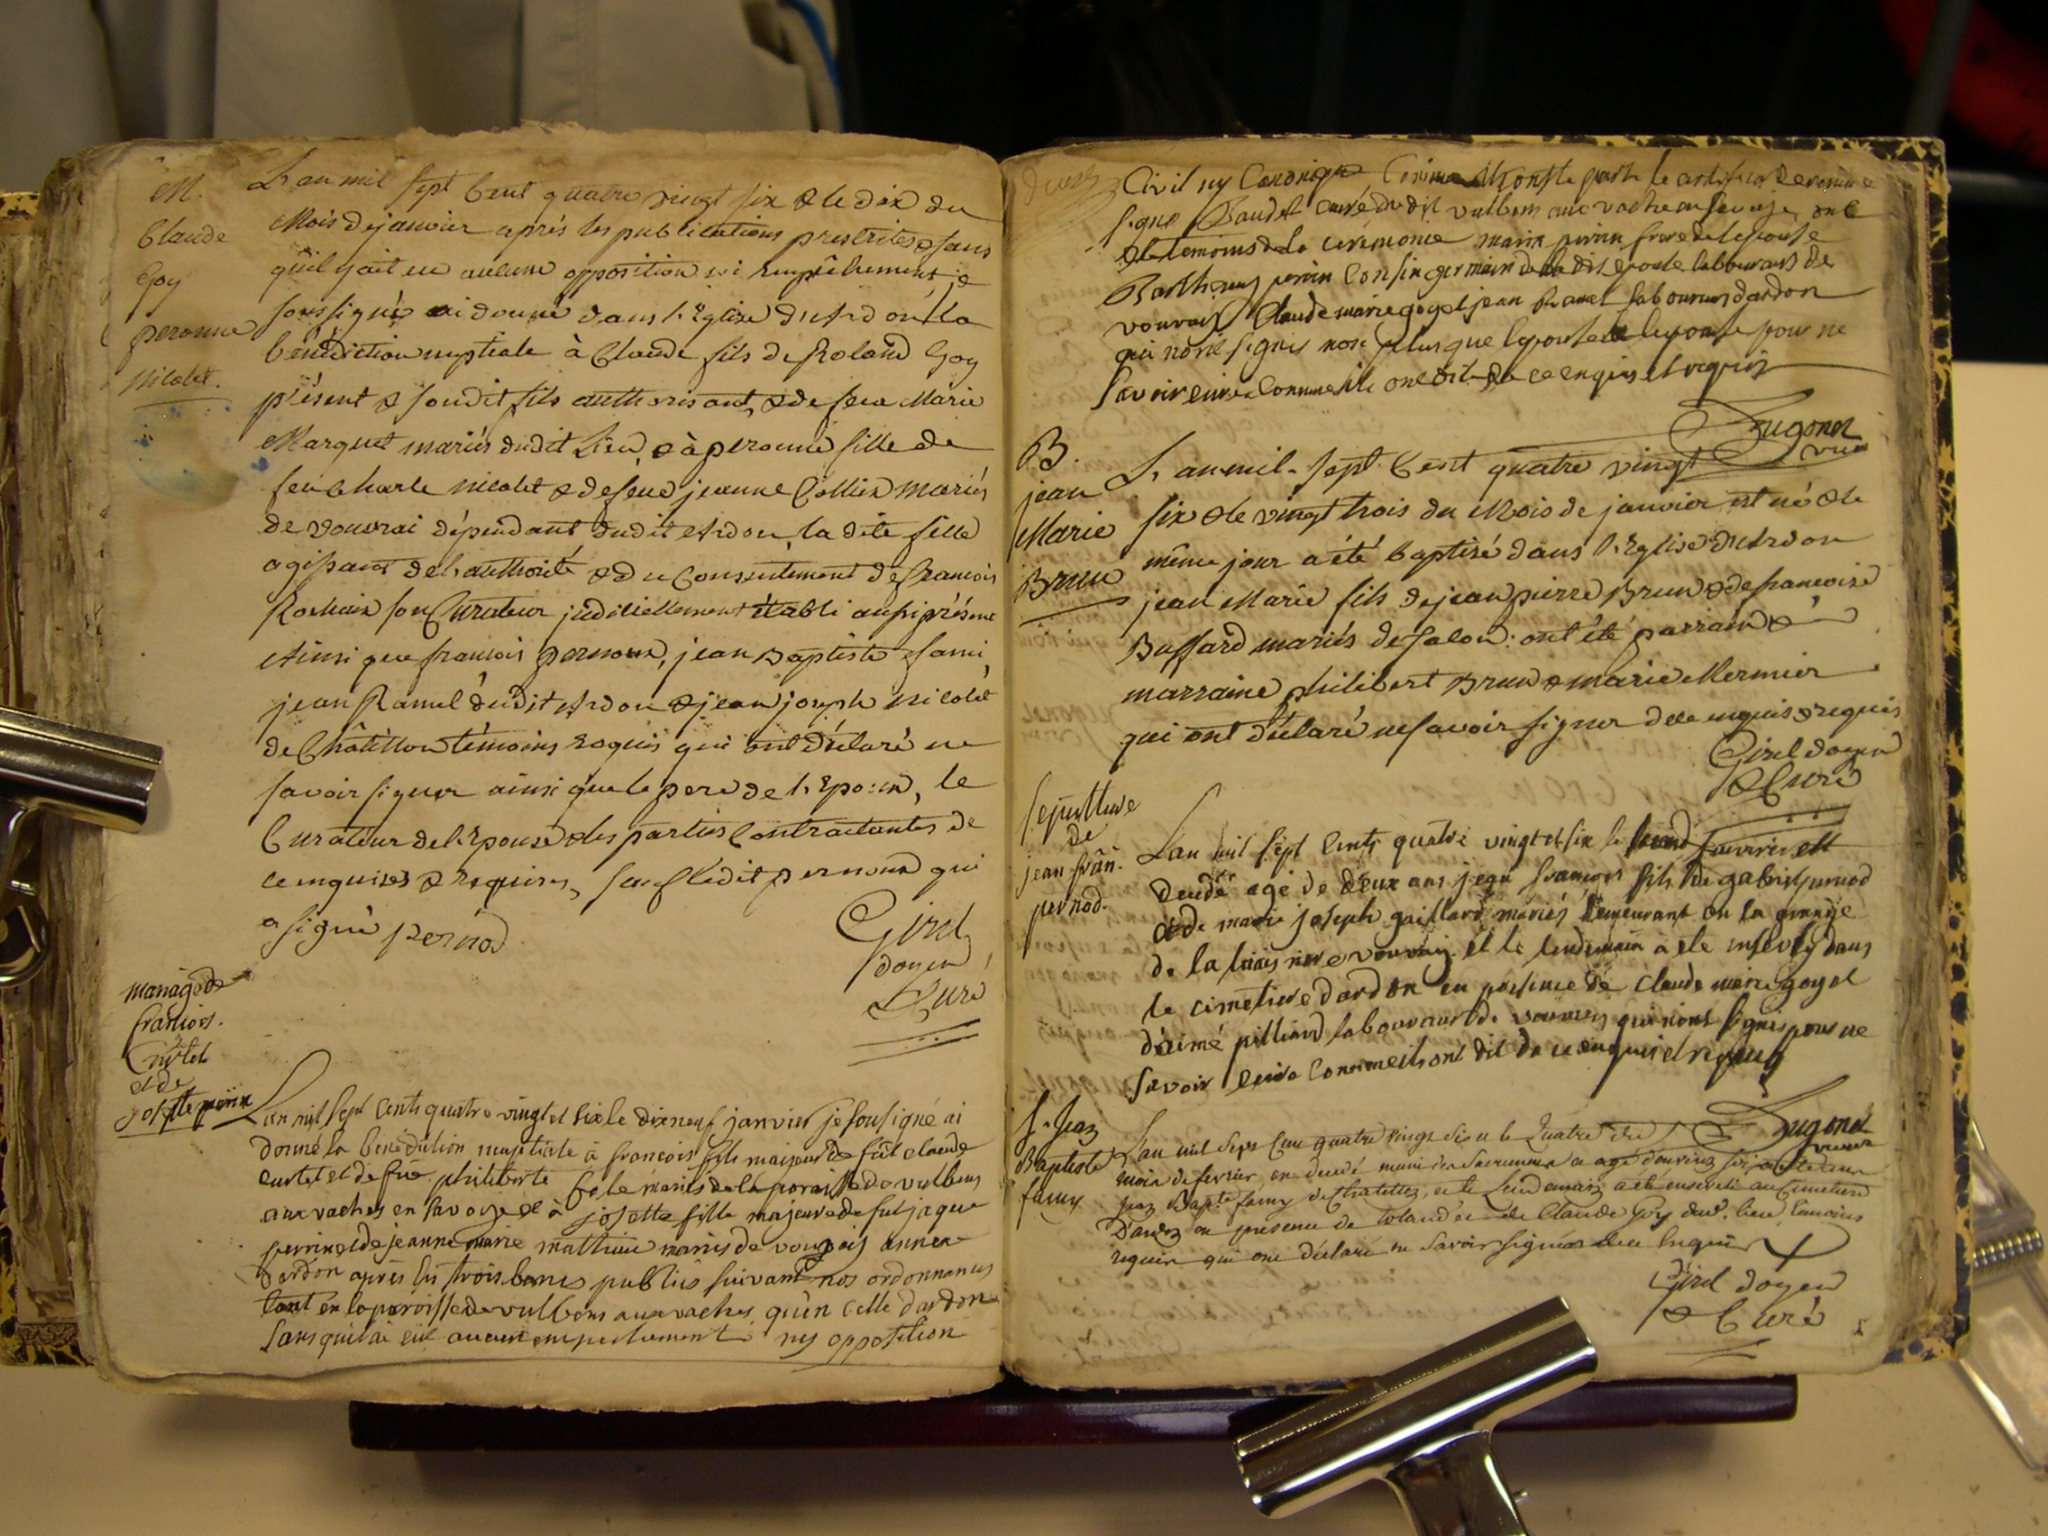 M.
Claude
Goy
peronne
Nicolet.
L'an mil sept cent quatre vingt six & le dix du
Mois de janvier après les publications prescrites & sans
qu'il y ait eu aucune opposition ni empêchement je
soussigné ai donné dans l'Eglise d'Ardon la
bénédiction nuptiale à Claude fils de Roland Goy
présent & soudit fils authorisant, & de feue Marie
Marquet mariés dudit Lieu, & à peronne fille de
feu Charle Nicolet & de feue jeanne mariés
de vouvrai dépendant dudit Ardon, la dite fille
agissant de l'authorité & du Consentement de francois
son Curateur judiciellement établi aussi présent
Ainsi que francois pernoux, jean Baptiste fami,
jean Ramel dudit Ardon & jean joseph Nicolet
de Châtillon témoins requis qui ont déclaré ne
savoir signer ainsi que le pere de l'Epoux, le
Curateur de l'Epouse & les parties Contractantes de
ce enquises & requises, sauf ledit pernoux qui
a signé pernod
Girel
doyen
& Curé
mariage de
francois
et de
josette perrin
L'an mil sept cents quatre vingt et six le dixneuf janvier je sousigné ai
donné la bénédiction nuptiale à francois fils majeur de fût claude
et de fue philiberte mariés de la paroisse de vulbens
aux vaches en Savoye & à josette fille majeure de fut jaque
perrin et de jeanne marie mathieu mariés de vouvrais annexe
dardon après les trois bancs publiés suivant nos ordonnances
tant en la paroisse de vulbens aux vaches qu'en celle dardon
sans quil ai eut aucun empechement ny opposition
Civil ny Canonique Comme il conste par le certificat de
signé Baudet curé dudit vulbens aux vaches en Savoye, ont
été temoins de la ceremonie marin perrin frere de lepouse
Barthemy perrin Cousin germain de la dit epouse laboureurs de
vouvrais Claude marie goyet jean Ravet laboureurs dardon
qui nont signés non plus que lepoux et lepouse pour ne
savoir ecrire comme ils ont dit de ce enquis et requis
Hugonet
vicaire
B.
jean
Marie
Brun
L'an mil sept Cent quatre vingt
six & le vingt trois du Mois de janvier est né & le
même jour a été baptisé dans l'Eglise d'Ardon
jean Marie fils de jean pierre Brun & de francoise
Buffard mariés de Jalou: ont été parrain &
marraine philibert Brun & marie Mermier
qui ont déclaré ne savoir signer de ce enquis & requis
Girel doyen
& Curé
sepulture
de
jean fran.
pernod.
L'an mil sept cents quatre vingt et six le second fevrier est
decedé agé de deux ans jean francois fils de gabriel pernod
& de marie joseph gaillard mariés demeurant en la grange
de la vouvrais et le lendemain a ete ensevely dans
le cimetiere dardon en présence de Claude marie goyet
d'aimé pilliard laboureurs de vouvray qui nont signés pour ne
savoir ecrire comme ils ont dit de ce enquis et requis
Hugonet
vicaire
S. Jean
Baptiste
famy
L'an mil sept Cent quatre vingt six & le quatre du
mois de fevrier, est decedé muni des sacremens
jean Bapte famy de Chatillon, et le Lendemain a été enseveli au Cimetiere
D'ardon en presence de Roland & de Claude Goy dud. lieu temoins
requis qui ont déclaré ne savoir signer de ce Enquis
Girel doyen
& Curé